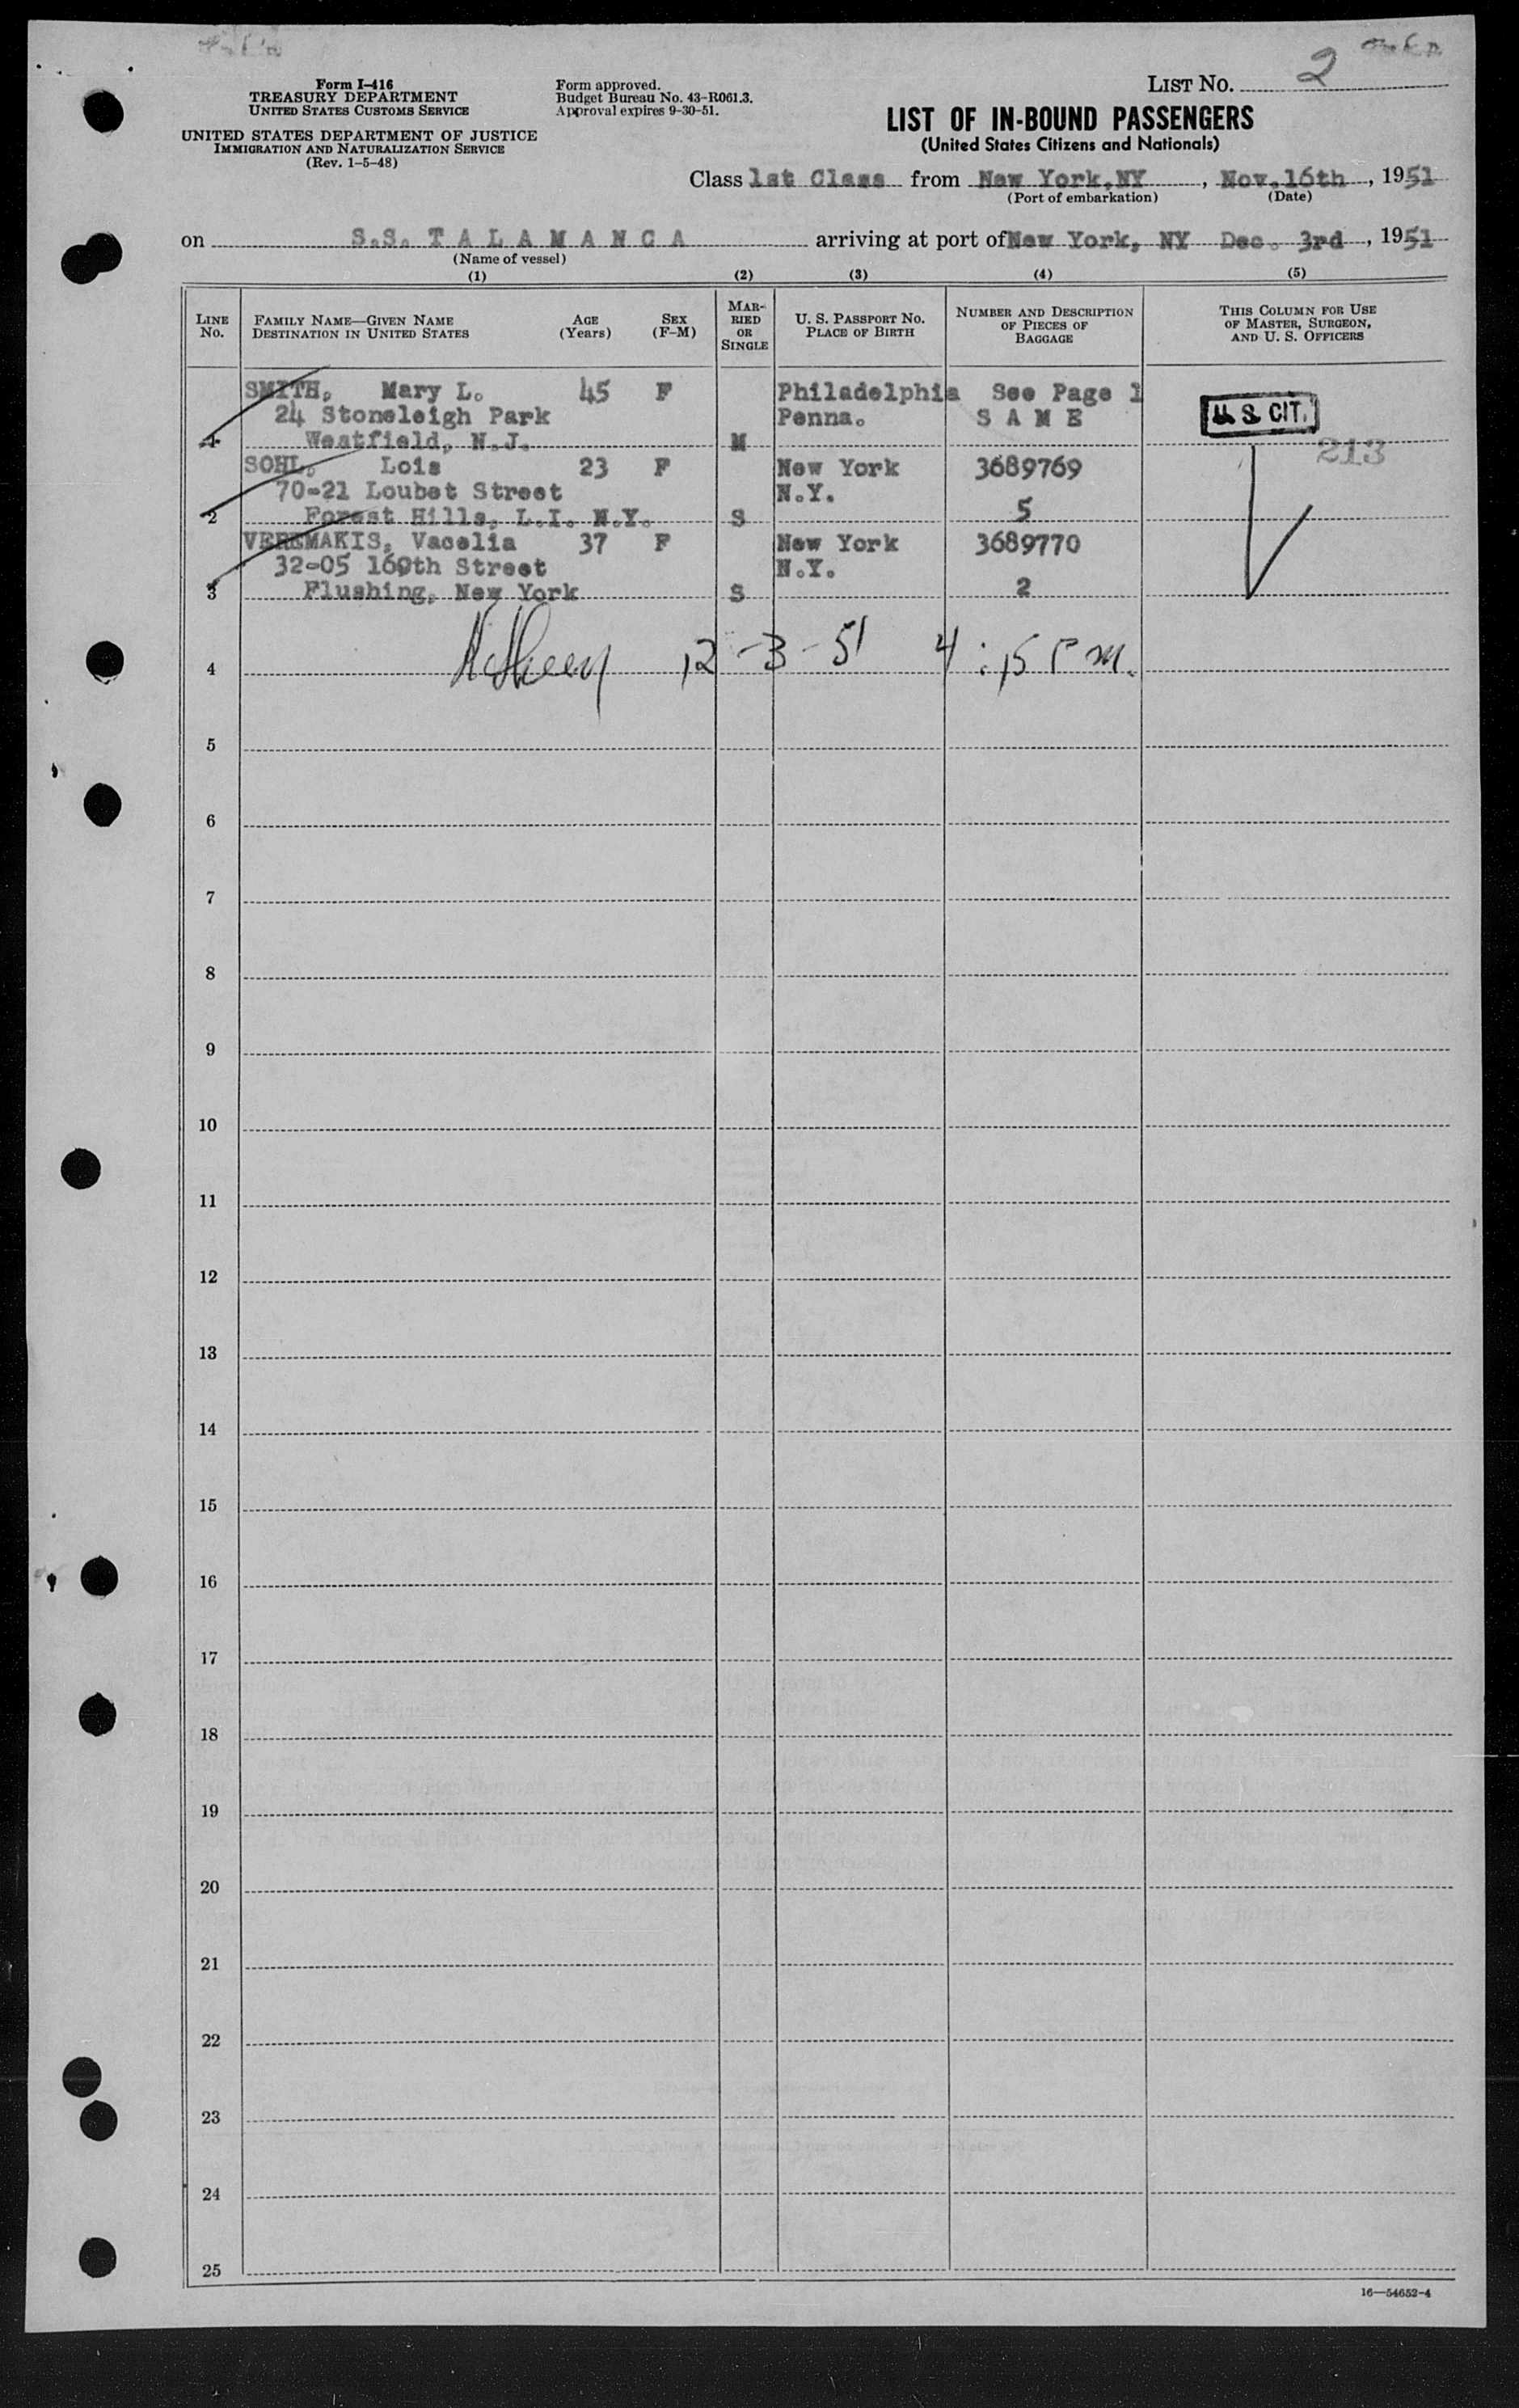 Form I-416
TREASURY DEPARTMENT
UNITED STATES CUSTOMS SERVICE
UNITED STATES DEPARTMENT OF JUSTICE
IMMIGRATION AND NATURALIZATION SERVICE
(Rev. 1-5-48)
Form approved.
Budget Bureau No. 43-R061.3.
Approval expires 9-30-51.
LIST NO. 2
LIST OF IN-BOUND PASSENGERS
(United States Citizens and Nationals)
Class 1st Class from New York, NY, Nov. 16th, 1951
(Port of embarkation) (Date)
on S.S. T A L A M A N C A arriving at port of New York, NY Dec. 3rd, 1951
(Name of vessel)
(1) (2) (3) (4) (5)
LINE NO.
FAMILY NAME—GIVEN NAME
DESTINATION IN UNITED STATES
AGE (Years)
SEX (F-M)
MARRIED OR SINGLE
U. S. PASSPORT NO.
PLACE OF BIRTH
NUMBER AND DESCRIPTION
OF PIECES OF
BAGGAGE
THIS COLUMN FOR USE
OF MASTER, SURGEON,
AND U. S. OFFICERS
SMITH, Mary L. 45 F Philadelphia See Page 1
24 Stoneleigh Park Penna. S A M E U. S. CIT.
1 Westfield, N.J. M
213
SOHL, Lois 23 F New York 3689769
70-21 Loubet Street N.Y.
2 Forest Hills, L.I. N.Y. S 5
VEREMAKIS, Vacelia 37 F New York 3689770
32-05 169th Street N.Y.
3 Flushing, New York S 2
4 12-3-51 4:15 P m.
5
6
7
8
9
10
11
12
13
14
15
16
17
18
19
20
21
22
23
24
25
16—54652-4